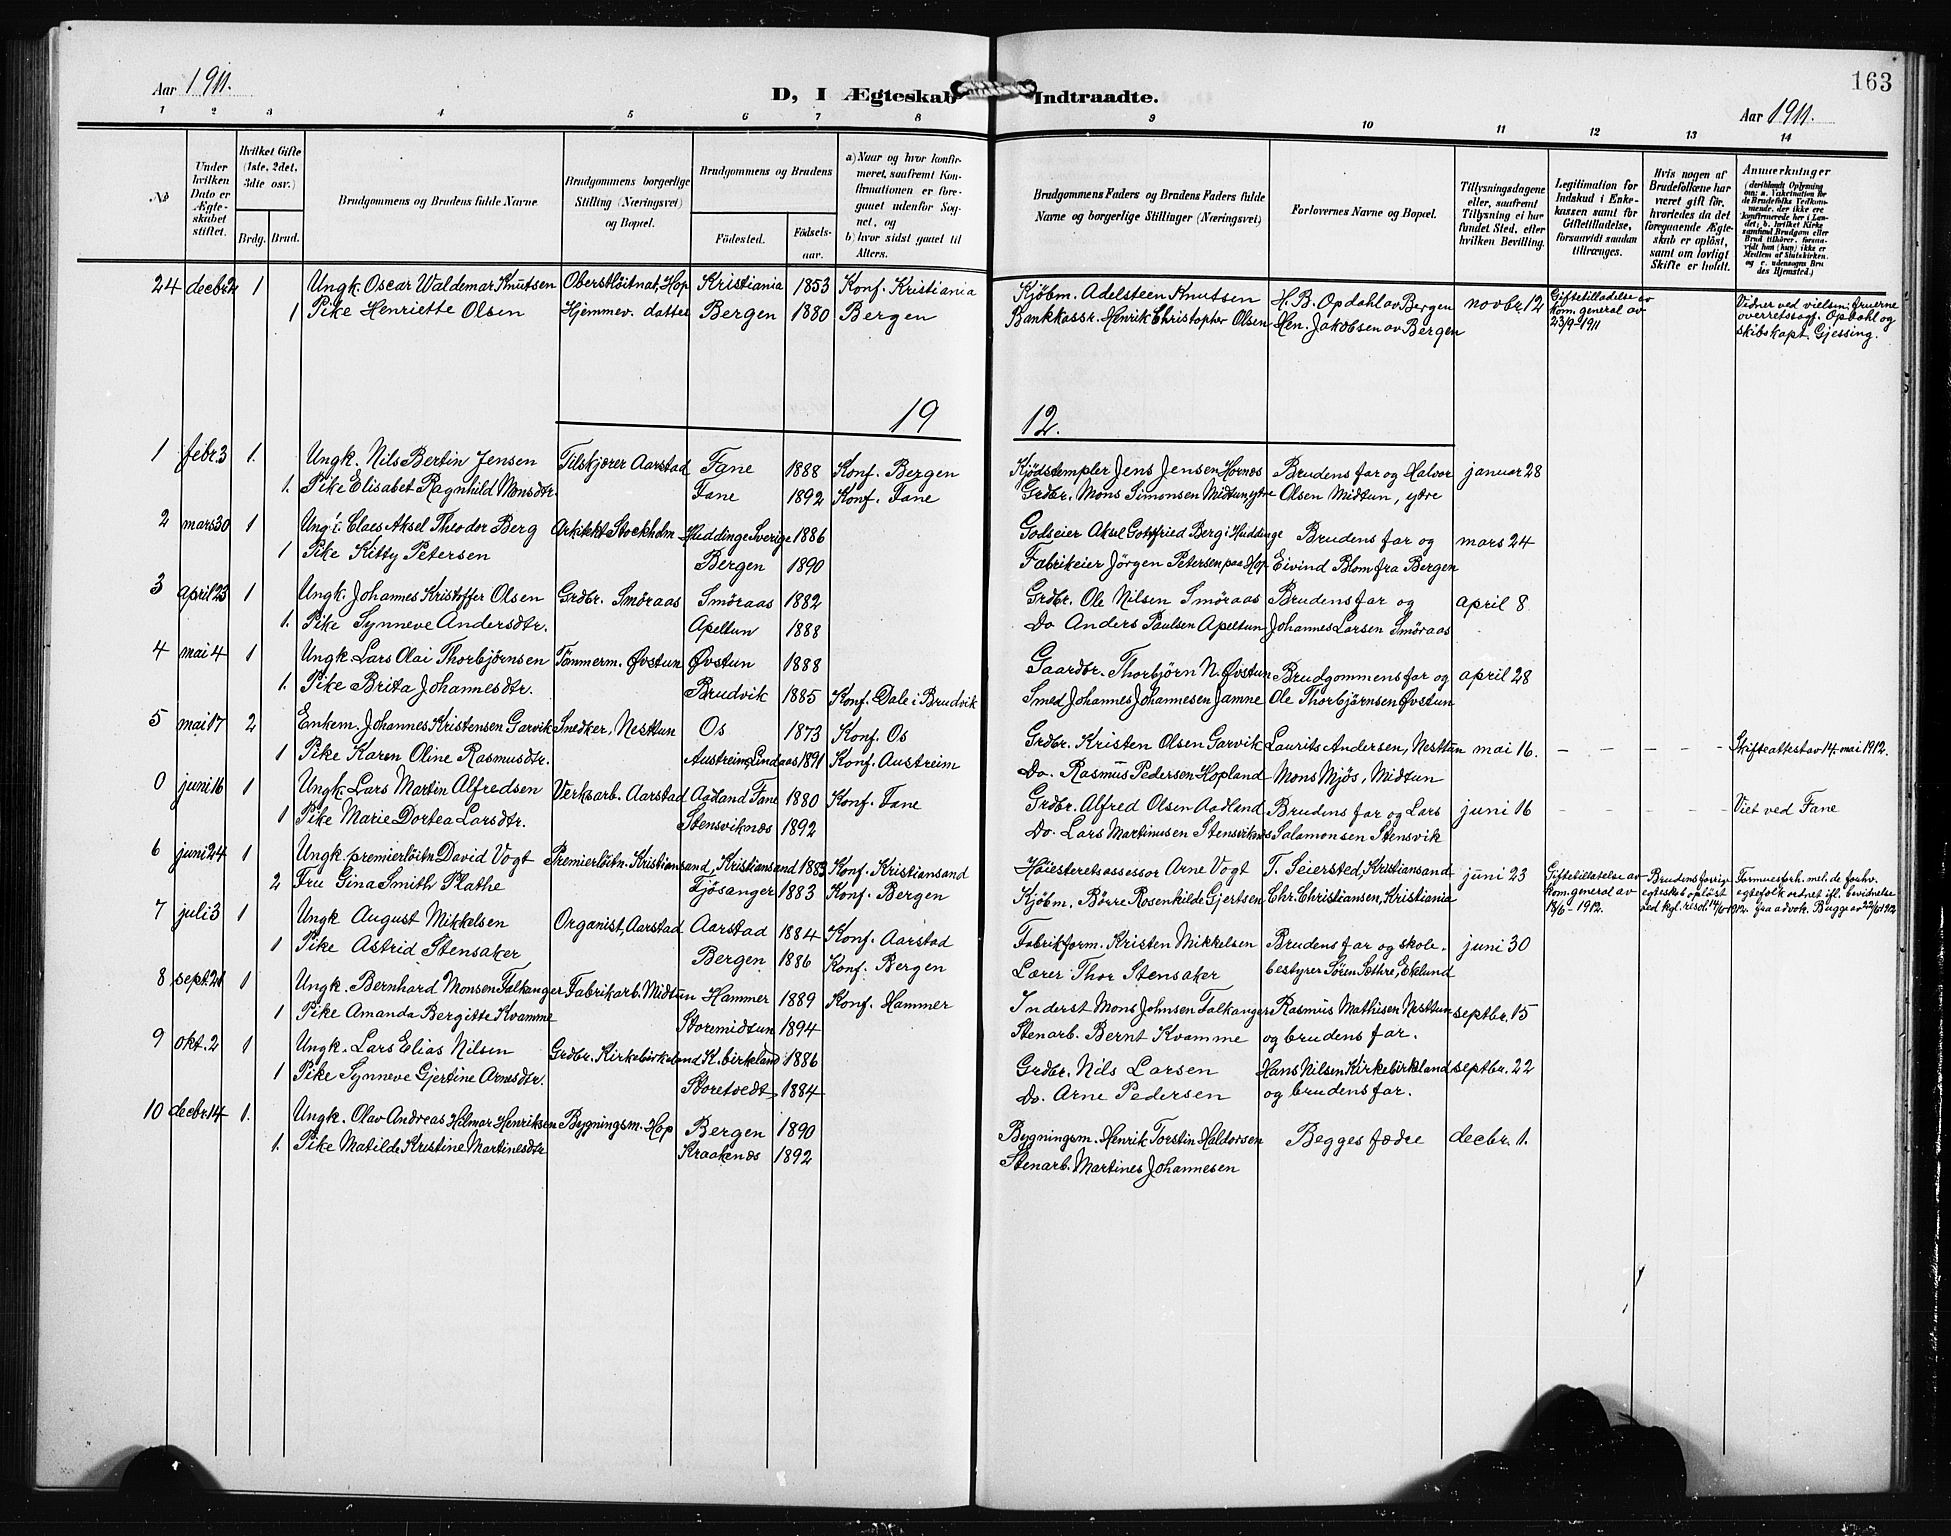 Aar 1911.
D, I Ægteskab Indtraadte.
163
Aar 1911.
1 2 3 4 5 6 7 8 9 10 11 12 13 14
No
Under hvilken Dato er Ægteskabet stiftet.
Hvilket Gifte (1ste, 2det, 3dte osv.)
Brdg. Brud.
Brudgommens og Brudens fulde Navne
Brudgommens borgerlige Stilling (Næringsvei) og Bopæl.
Brudgommens og Brudens
Födested. Födselsaar.
a) Naar og hvor konfirmeret, saafremt Konfirmationen er foregaaet udenfor Sognet, og
b) hvor sidst gaaet til Alters.
Brudgommens Faders og Brudens Faders fulde Navne og borgerlige Stillinger (Næringsvei)
Forlovernes Navne og Bopæl.
Tillysningsdagene eller, saafremt Tillysning ei har fundet Sted, efter hvilken Bevilling.
Legitimation for Indskud i Enkekassen samt for Giftetilladelse, forsaavidt saadan tiltrænges.
Hvis nogen af Brudefolkene har været gift för, hvorledes da det foregaaende Ægteskab er oplöst, samt om lovligt Skifte er holdt.
Anmærkninger
24 decbr 2 1 Ungk. Oscar Waldemar Knutsen Oberstløitnat, Hop Kristiania 1853 Konf. Kristiania Kjøbm. Adelsteen Knutsen H. B. Opdahl av Bergen novbr. 12 Giftetilladelse av Vidner ved vielsen: fruerne
1 Pike Henriette Olsen Hjemmev. datter Bergen 1880 Bergen Bankkassr. Henrik Christopher Olsen Hen. Jakobsen av Bergen kom. general av overretssagf. Opdahl og
23/9-1911 skibskapt. Gjessing.
19 12.
1 febr. 3 1. Ungk. Nils Bertin Jensen Tilskjærer Aarstad Fane 1888 Konf. Bergen Kjødstempler Jens Jensen Hornæs Brudens far og Halvor januar 28
1. Pike Elisabet Ragnhild Monsdtr. Fane 1892 Konf. Fane Grdbr. Mons Simonsen Midtun, ytre Olsen Midtun, ytre
2 mars 30 1 Ungk. Claes Aksel Theodor Berg Arkitekt Stockholm Huddinge Sverige 1886 Godseier Aksel Gottfried Berg i Huddinge Brudens far og mars 24
1 Pike Kitty Petersen Bergen 1890 Fabrikeier Jörgen Petersen paa Hop Eivind Blom fra Bergen
3 april 23 1 Ungk. Johannes Kristoffer Olsen Grdbr. Smöraas Smöraas 1882 Grdbr. Ole Nilsen Smöraas Brudens far og april 8
1. Pike Synneve Andersdtr. Apeltun 1888 Do Anders Paulsen Apeltun Johannes Larsen Smöraas
4 mai 4 1 Ungk. Lars Olai Thorbjörnsen Tömmerm. Øvstun Øvstun 1888 Gaardbr. Thorbjörn N. Øvstun Brudgommens far og april 28
1. Pike Brita Johannesdtr. Brudvik 1885 Konf. Dale i Brudvik Smed Johannes Johannesen Jamne Ole Thorbjörnsen Øvstun
5 mai 17 2 Enkem. Johannes Kristensen Garvik Snedker, Nesttun Os 1873 Konf. Os Grdbr. Kristen Olsen Garvik Laurits Andersen, Nesttun mai 16. – – – – Skifteattest av 14. mai 1912.
1 Pike Karen Oline Rasmusdtr. Austreim, Lindaas 1891 Konf. Austreim Do. Rasmus Pedersen Hopland Mons Mjös, Midtun
0 juni 16 1 Ungk. Lars Martin Alfredsen Verksarb. Aarstad Aadland Fane 1880 Konf. Fane Grdbr. Alfred Olsen Aadland Brudens far og Lars juni 16 – – – – Viet ved Fane
1 Pike Marie Dortea Larsdtr. Stensviknæs 1892 Do. Lars Martinusen Stensviknæs Salamonsen Stensvik
6 juni 24 1 Ungk. premierlöitn. David Vogt Premierlöitn. Kristiansand, Kristiansand 1883 Konf. Kristiansand Höiesteretsassessor Arne Vogt T. Seiersted, Kristiansand juni 23 Giftetilladelse av Brudens forrige Formuesforh. mel. de forhv.
2 Fru Gina Smith Plathe Fjösanger 1883 Konf. Bergen Kjøbm. Börre Rosenkilde Gjertsen Chr. Christiansen, Kristiania kom. general av egteskab oplöst egtefolk ordnet ifl. bevidnelse
13/6-1912. ved kgl. resol. 14/6 1912. fra advok. Bugge av 22/6 1912
7 juli 3 1 Ungk August Mikkelsen Organist, Aarstad Aarstad 1884 Konf. Aarstad Fabrikform. Kristen Mikkelsen Brudens far og skole- juni 30
1 Pike Astrid Stensaker Bergen 1886 Konf. Bergen Lærer Thor Stensaker bestyrer Sören Sæthre, Ekelund
8 sept. 21 1 Ungk. Bernhard Monsen Falkanger Fabrikarb. Midtun Hammer 1889 Konf. Hammer Inderst Mons Johnsen Falkanger Rasmus Mathisen Nesttun septbr. 15
1 Pike Amanda Bergitte Kvamme Storemidtun 1894 Stenarb. Bernt Kvamme og brudens far.
9 okt. 2 1 Ungk. Lars Elias Nilsen Grdbr. Kirkebirkeland K. birkeland 1886 Grdbr. Nils Larsen Hans Nilsen Kirkebirkeland septbr. 22
1 Pike Synneve Gjertine Arnesdtr. Storetvedt 1884 Do. Arne Pedersen og brudens far.
10 decbr. 14 1. Ungk. Olav Andreas Hilmar Henriksen Bygningsm. Hop Bergen 1890 Bygningsm. Henrik Torstin Haldorsen Begges fædre decbr. 1.
1. Pike Matilde Kristine Martinesdtr Kraakenæs 1892 Stenarb. Martines Johannesen